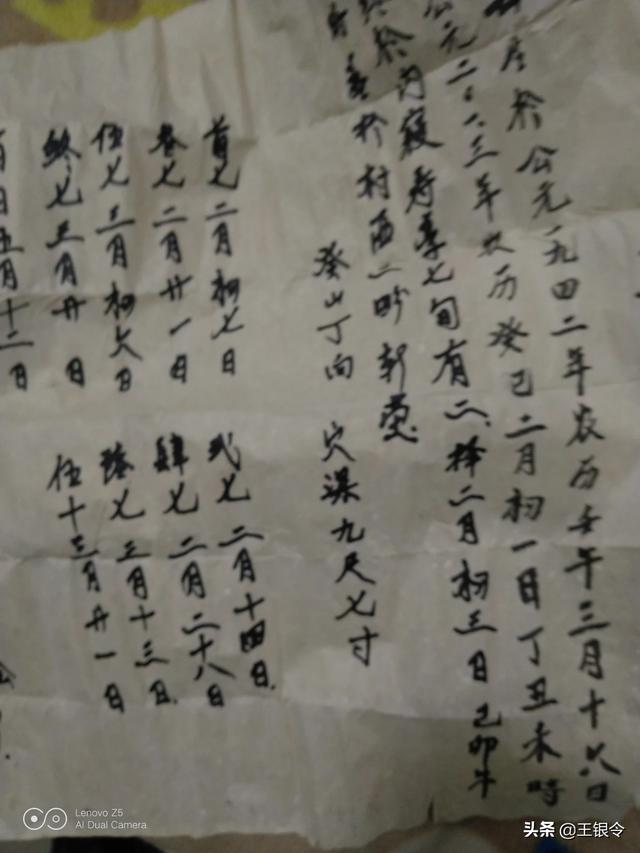 生於公元一九四二年农历壬午三月十六日
公元二〇一三年农历癸巳二月初一日丁丑未時
終於内寝寿享七旬有二、择二月初三日己卯
於村西二畛新塋
癸山丁向 穴深九尺七寸
首七二月初七日 弍七二月十四日
叁七二月廿一日 肆七二月二十八日
伍七三月初六日 陸七三月十三日
終七三月廿日 伍十三月廿一日
百日五月十二日
Lenovo Z5
AI Dual Camera
头条 @王银令